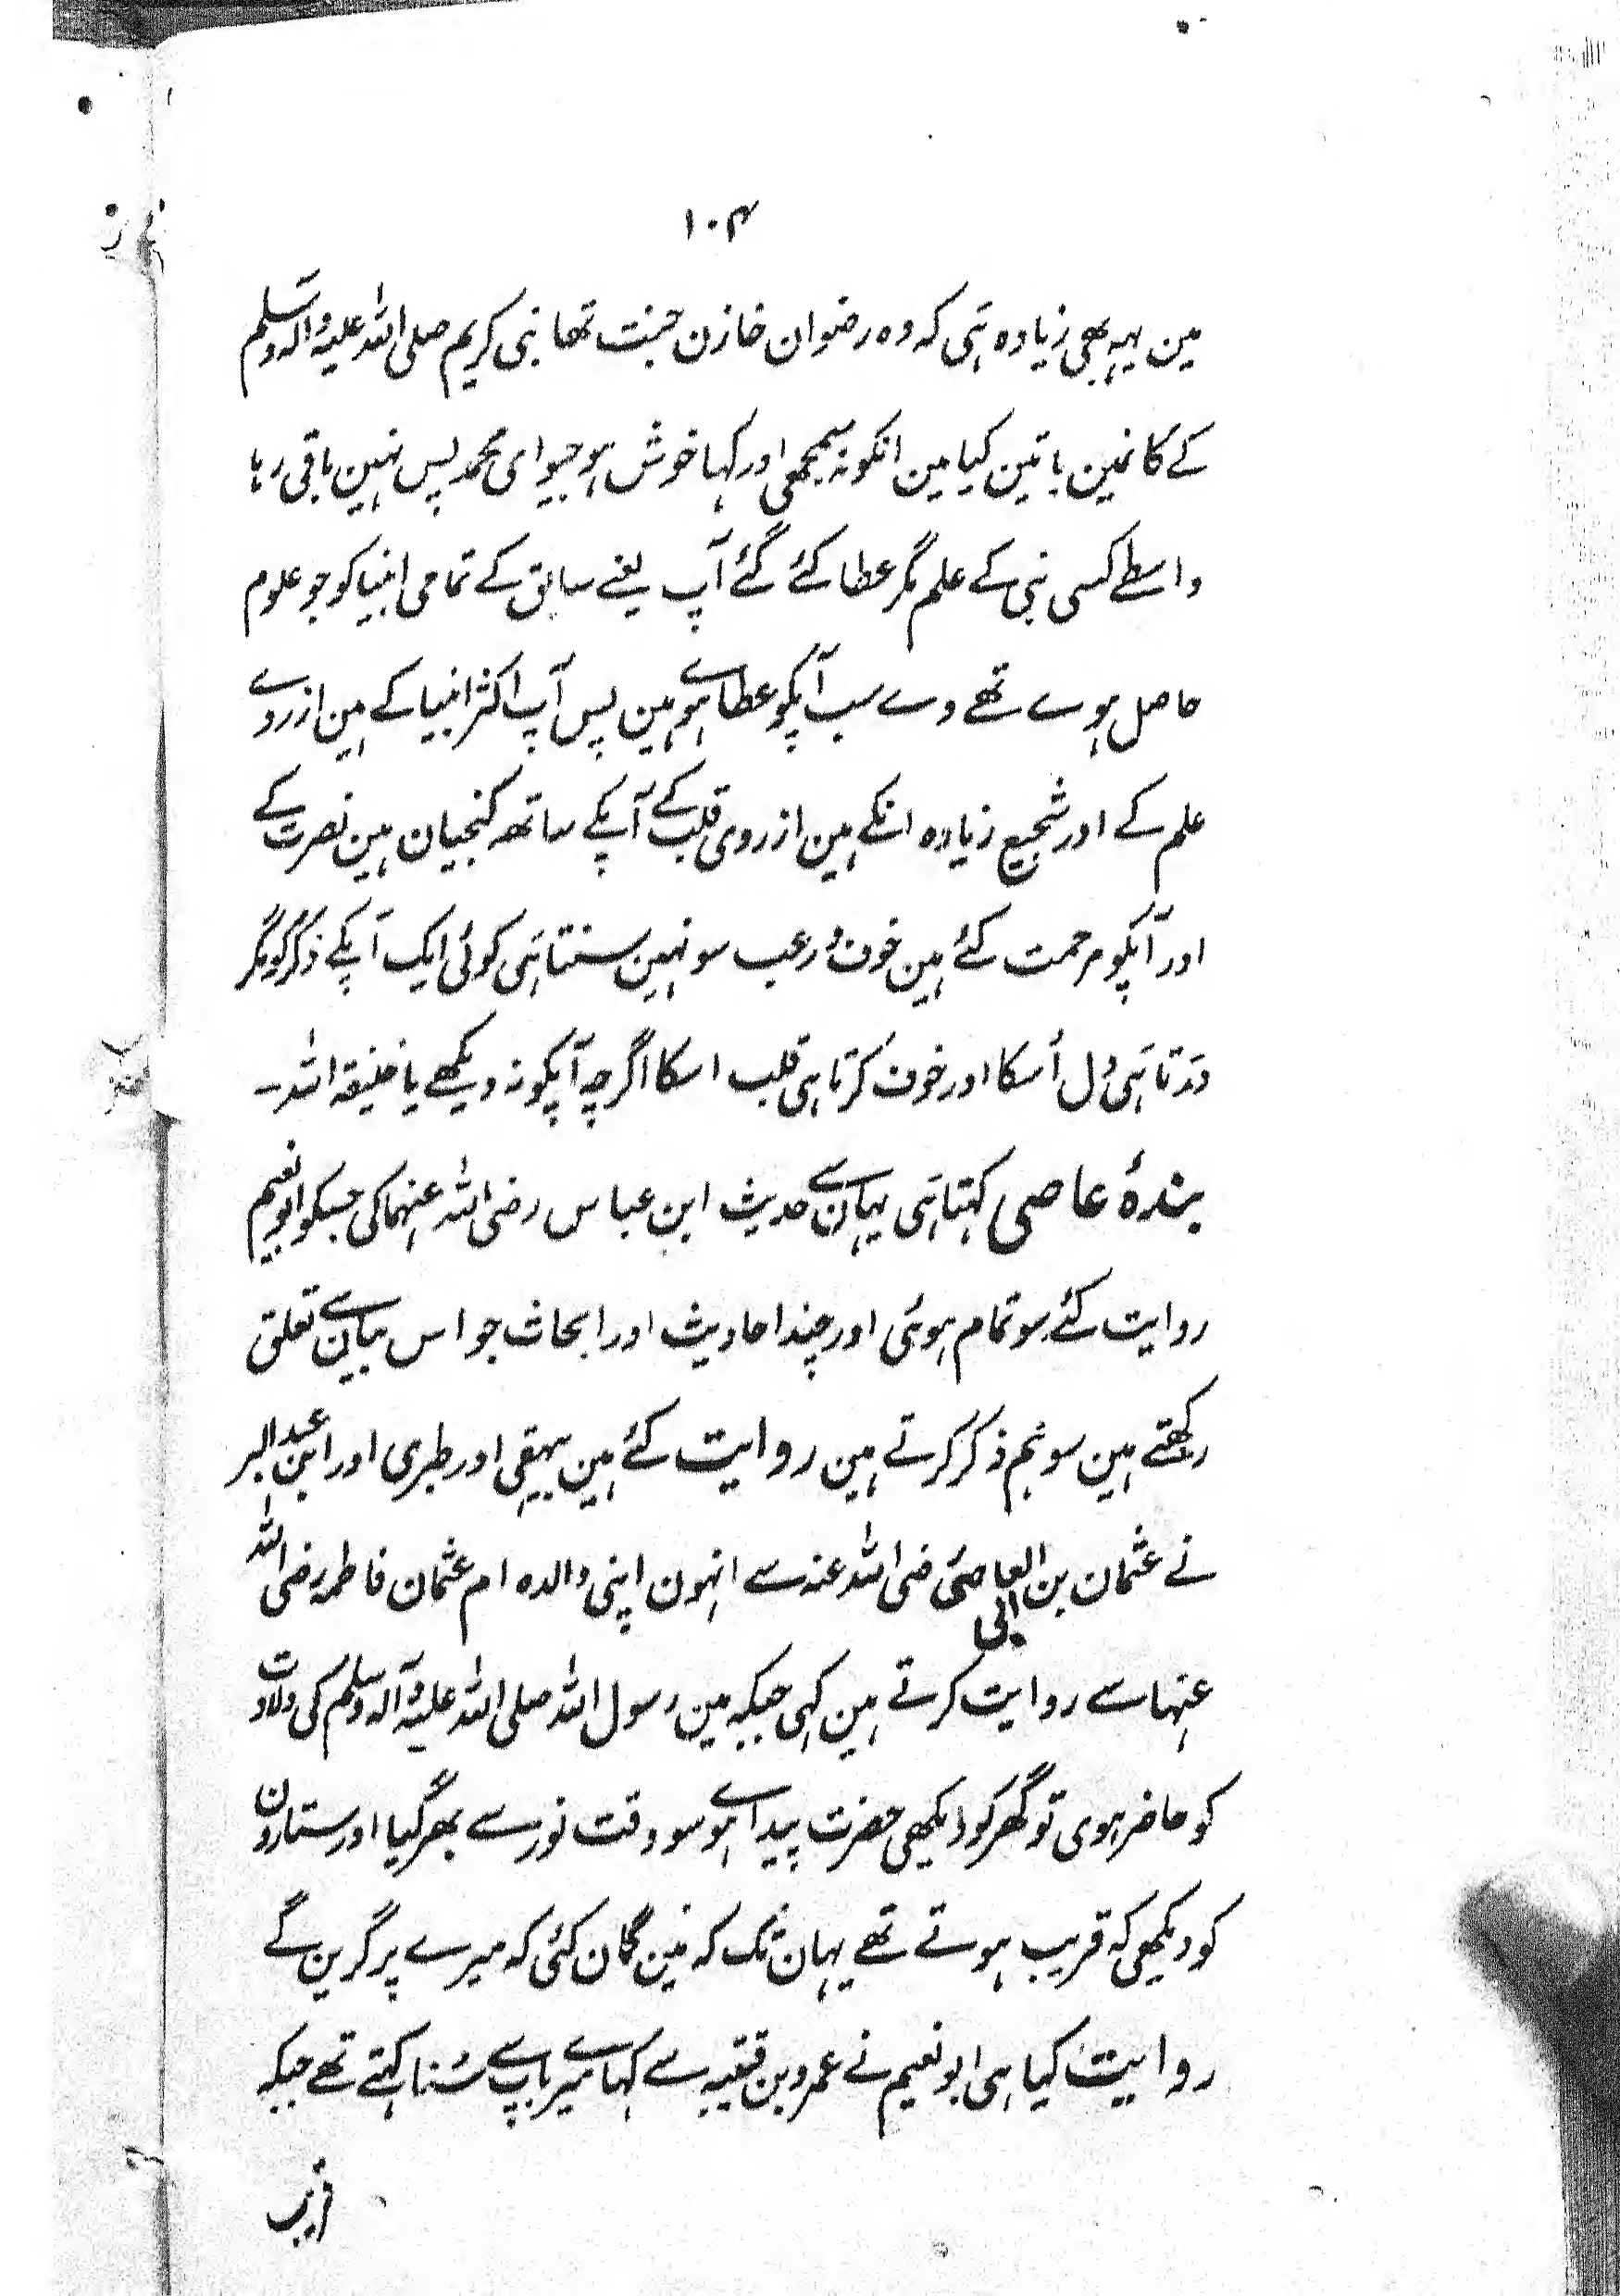 ۱۰۴
مین یہہ بھی زیادہ ہی کہ وہ رضوان خازن جنت تھا نبی کریم صلی اللہ علیہ والہ وسلم
کے کانمین باتین کیا مین انکو نہ سمجھی اور کہا خوش ہوجیو ای محمد پس نہین باقی رہا
واسطے کسی نبی کے علم مگر عطا کئے گئے آپ یعنے سابق کے تمامی انبیا کو جو علوم
حاصل ہوے تھے وے سب آپکو عطا ہوے ہین پس آپ اکثر انبیا کے ہین ازروے
علم کے اور شجیع زیادہ انکے ہین ازروی قلب کے آپکے ساتھ کنجیان ہین نصرت کے
اور آپکو مرحمت کئے ہین خوف و رعب سو نہین سنتا ہی کوئی ایک آپکے ذکر کو مگر
دَدتا ہی دل اُسکا اور خوف کرتا ہی قلب اسکا اگرچہ آپکو نہ دیکھے یا خلیفۃ اللہ ۔
بندۂ عاصی کہتا ہی یہان سے حدیث ابن عباس رضی اللہ عنہما کی جسکو ابو نعیم
روایت کئے سو تمام ہوئی اور چند احادیث اور ابحاث جو اس بیان سے تعلق
رکھتے ہین سو ہم ذکر کرتے ہین روایت کئے ہین بیہقی اور طبری اور ابن عبد البر
نے عثمان بن ابی العاصی رضی اللہ عنہ سے انہون اپنی والدہ ام عثمان فاطمہ رضی اللہ
عنہا سے روایت کرتے ہین کہی جبکہ مین رسول اللہ صلی اللہ علیہ وآلہ وسلم کی ولادت
کو حاضر ہوی تو گھر کو دیکھی حضرت پیدا ہوے سو وقت نور سے بھر گیا اور ستارون
کو دیکھی کہ قریب ہوتے تھے یہان تک کہ مین گمان کئی کہ میرے پر گرین گے
روایت کیا ہی ابو نعیم نے عمرو بن قتیبہ سے کہا میرے باپ سے سُنا کہتے تھے جبکہ
قریب